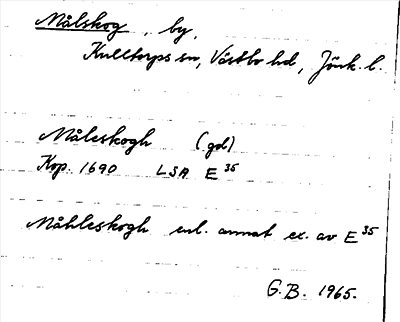 Målskog, by,
Kulltorps sn, Västbo hd, Jönk. l.
Måleskogh (gd)
Kop. 1690 LSA E 35
Måhleskogh enl. annat ex. av E 35
G.B. 1965.